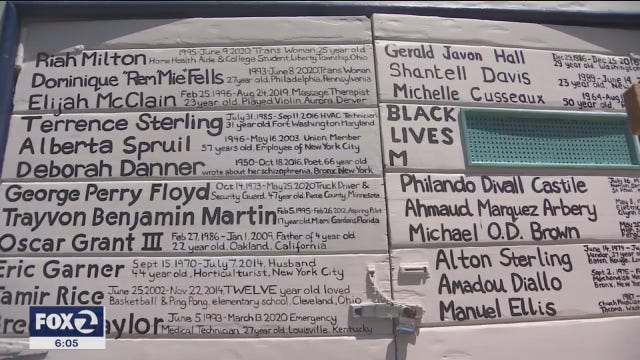 Riah Milton 1995-June 9 2020 Trans Woman, 25 year old
Home Health Aide & College Student, Liberty Township, Ohio
Dominique "Rem'Mie" Fells 1993-June 8 2020 Trans Woman
27 year old, Philadelphia, Pennsylvania
Elijah McClain Feb 25, 1996-Aug 24, 2019, Massage Therapist
23 year old, Played Violin, Aurora, Denver
Terrence Sterling July 31, 1985-Sep 11, 2016 HVAC Technician
31 year old, Fort Washington, Maryland
Alberta Spruil 1946-May 16, 2003. Union Member
57 years old, Employee of New York City
Deborah Danner 1950-Oct 18, 2016, Poet, 66 year old
wrote about her schizophrenia, Bronx, New York
George Perry Floyd Oct 14, 1973-May 25, 2020 Truck Driver &
Security Guard, 47 year old,
Trayvon Benjamin Martin Feb 5, 1995-Feb 26 2012, Aspiring Pilot
17 year old, Miami Gardens, Florida
Oscar Grant III Feb 27, 1986-Jan 1, 2009, Father of 4 year old
22 year old, Oakland, California
Eric Garner Sept 15 1970-July 7, 2014, Husband
44 year old, Horticulturist, New York City
Tamir Rice June 25, 2002-Nov 22, 2014, TWELVE year old loved
Basketball & Ping Pong, elementary school, Cleveland, Ohio
June 5, 1993-March 13, 2020 Emergency
Medical Technician, 27 year old, Louisville, Kentucky
Gerald Javon Hall
Shantell Davis
23 year old,
Michelle Cusseaux
50 year old,
BLACK
LIVES
M
Philando Divall Castile
Ahmaud Marquez Arbery
Michael O.D. Brown
Alton Sterling
Amadou Diallo
Manuel Ellis
FOX 2
6:05